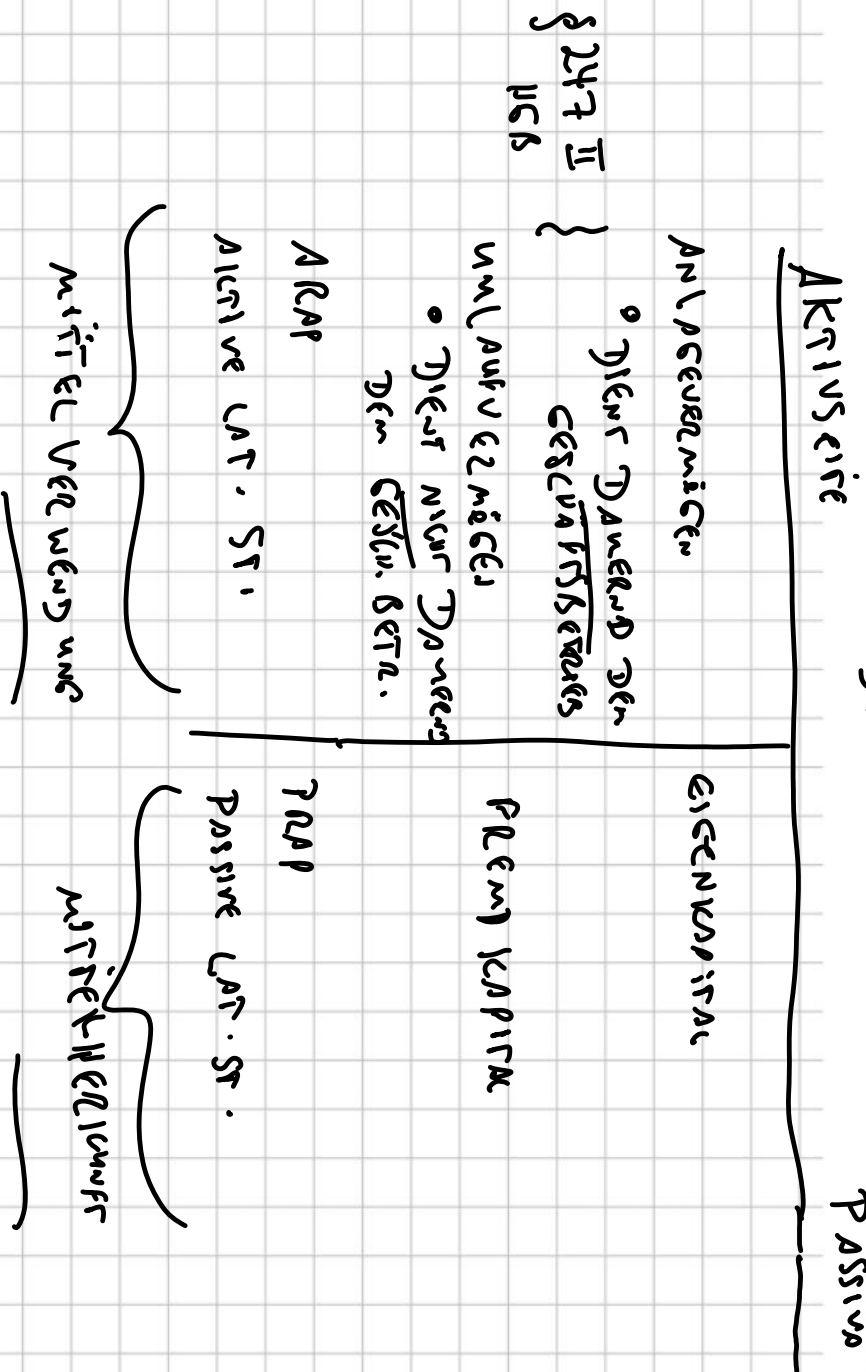 AKTIVSEITE
PASSIVA
ANLAGEVERMÖGEN
• DIENT DAUERND DEM
GESCHÄFTSBETRIEB
§ 247 II
HGB
UMLAUFVERMÖGEN
• DIENT NICHT DAUERND
DEM GESCH. BETR.
ARAP
AKTIVE LAT. ST.
MITTELVERWENDUNG
EIGENKAPITAL
FREMDKAPITAL
PRAP
PASSIVE LAT. ST.
MITTELHERKUNFT